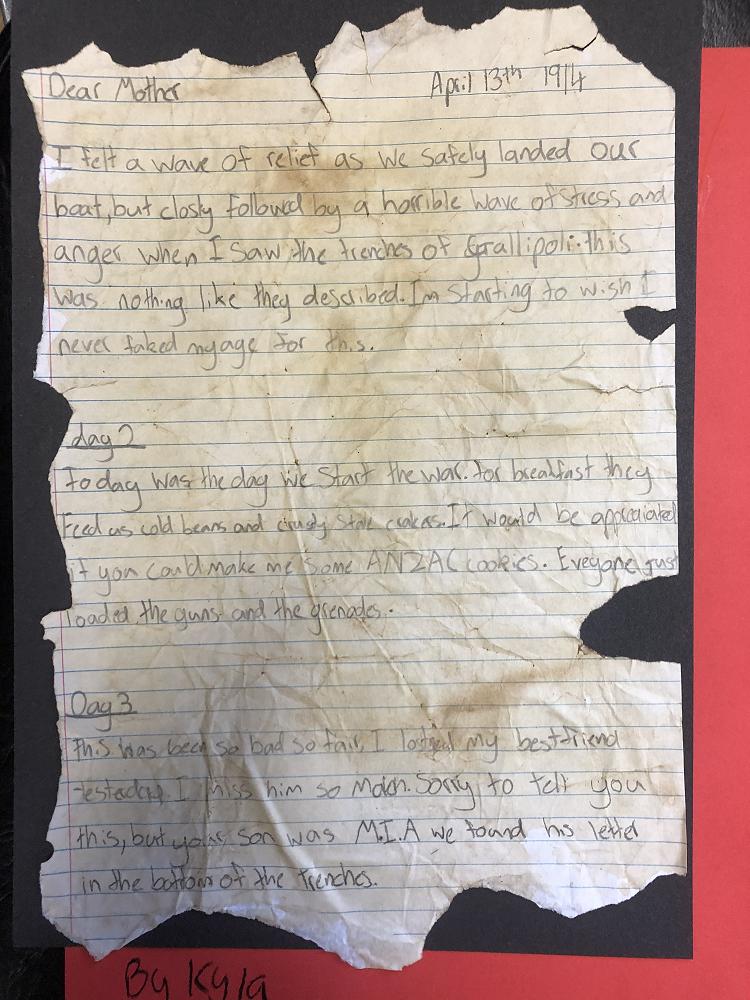 Dear Mother April 13th 1914
I felt a wave of relief as we safely landed our
boat, but closly followed by a horrible wave of stress and
anger when I saw the trenches of Gallipoli. this
was nothing like they described. Im starting to wish I
never faked my age for this.
day 2
Today was the day we start the war. for breakfast they
Feed us cold beans and stale It would be
if you could make me some ANZAC cookies. Everyone just
loaded the guns and the grenades.
Day 3
this has been so bad so far. I my bestfriend
I miss him so Sorry to tell you
this, but your son was M.I.A we found his letter
in the bottom of the trenches.
By Kyla